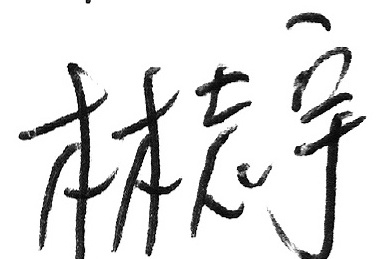 林志宇